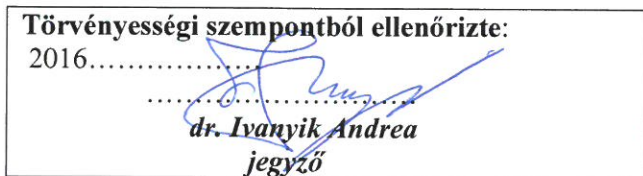 Törvényességi szempontból ellenőrizte:
2016....................
................................
dr. Ivanyik Andrea
jegyző